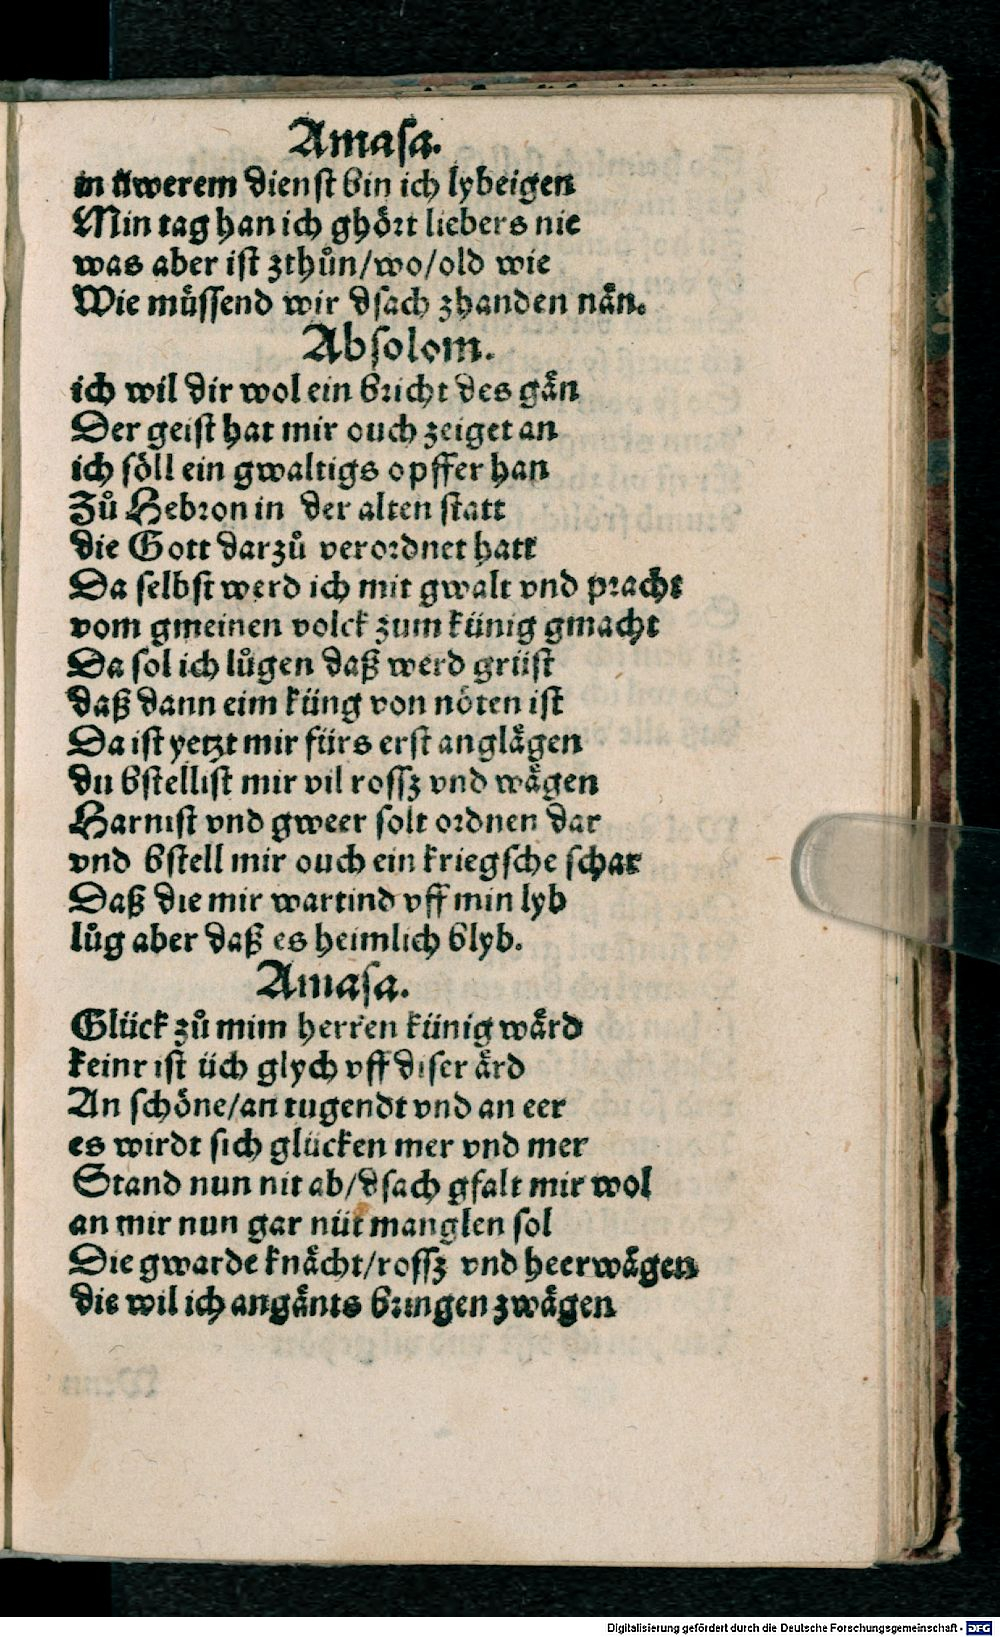 Amasa.
in üwerem dienst bin ich lybeigen
Min tag han ich ghört liebers nie
was aber ist zthůn/wo/old wie
Wie müssend wir dsach zhanden nän.
Absolom.
ich wil dir wol ein bricht des gän
Der geist hat mir ouch zeiget an
ich söll ein gwaltigs opffer han
Zů Hebron in der alten statt
die Gott darzů verordnet hatt
Da selbst werd ich mit gwalt vnd pracht
vom gmeinen volck zum künig gmacht
Da sol ich lůgen daß werd grüst
daß dann eim küng von nöten ist
Da ist yetzt mir fürs erst anglägen
du bstellist mir vil rossz vnd wägen
Harnist vnd gweer solt ordnen dar
vnd bstell mir ouch ein kriegsche schar
Daß die mir wartind vff min lyb
lůg aber daß es heimlich blyb.
Amasa.
Glück zů mim herren künig wärd
keinr ist üch glych vff diser ärd
An schöne/an tugendt vnd an eer
es wirdt sich glücken mer vnd mer
Stand nun nit ab/dsach gfalt mir wol
an mir nun gar nüt manglen sol
Die gwarde knächt/rossz vnd heerwägen
die wil ich angänts bringen zwägen
Digitalisierung gefördert durch die Deutsche Forschungsgemeinschaft - DFG